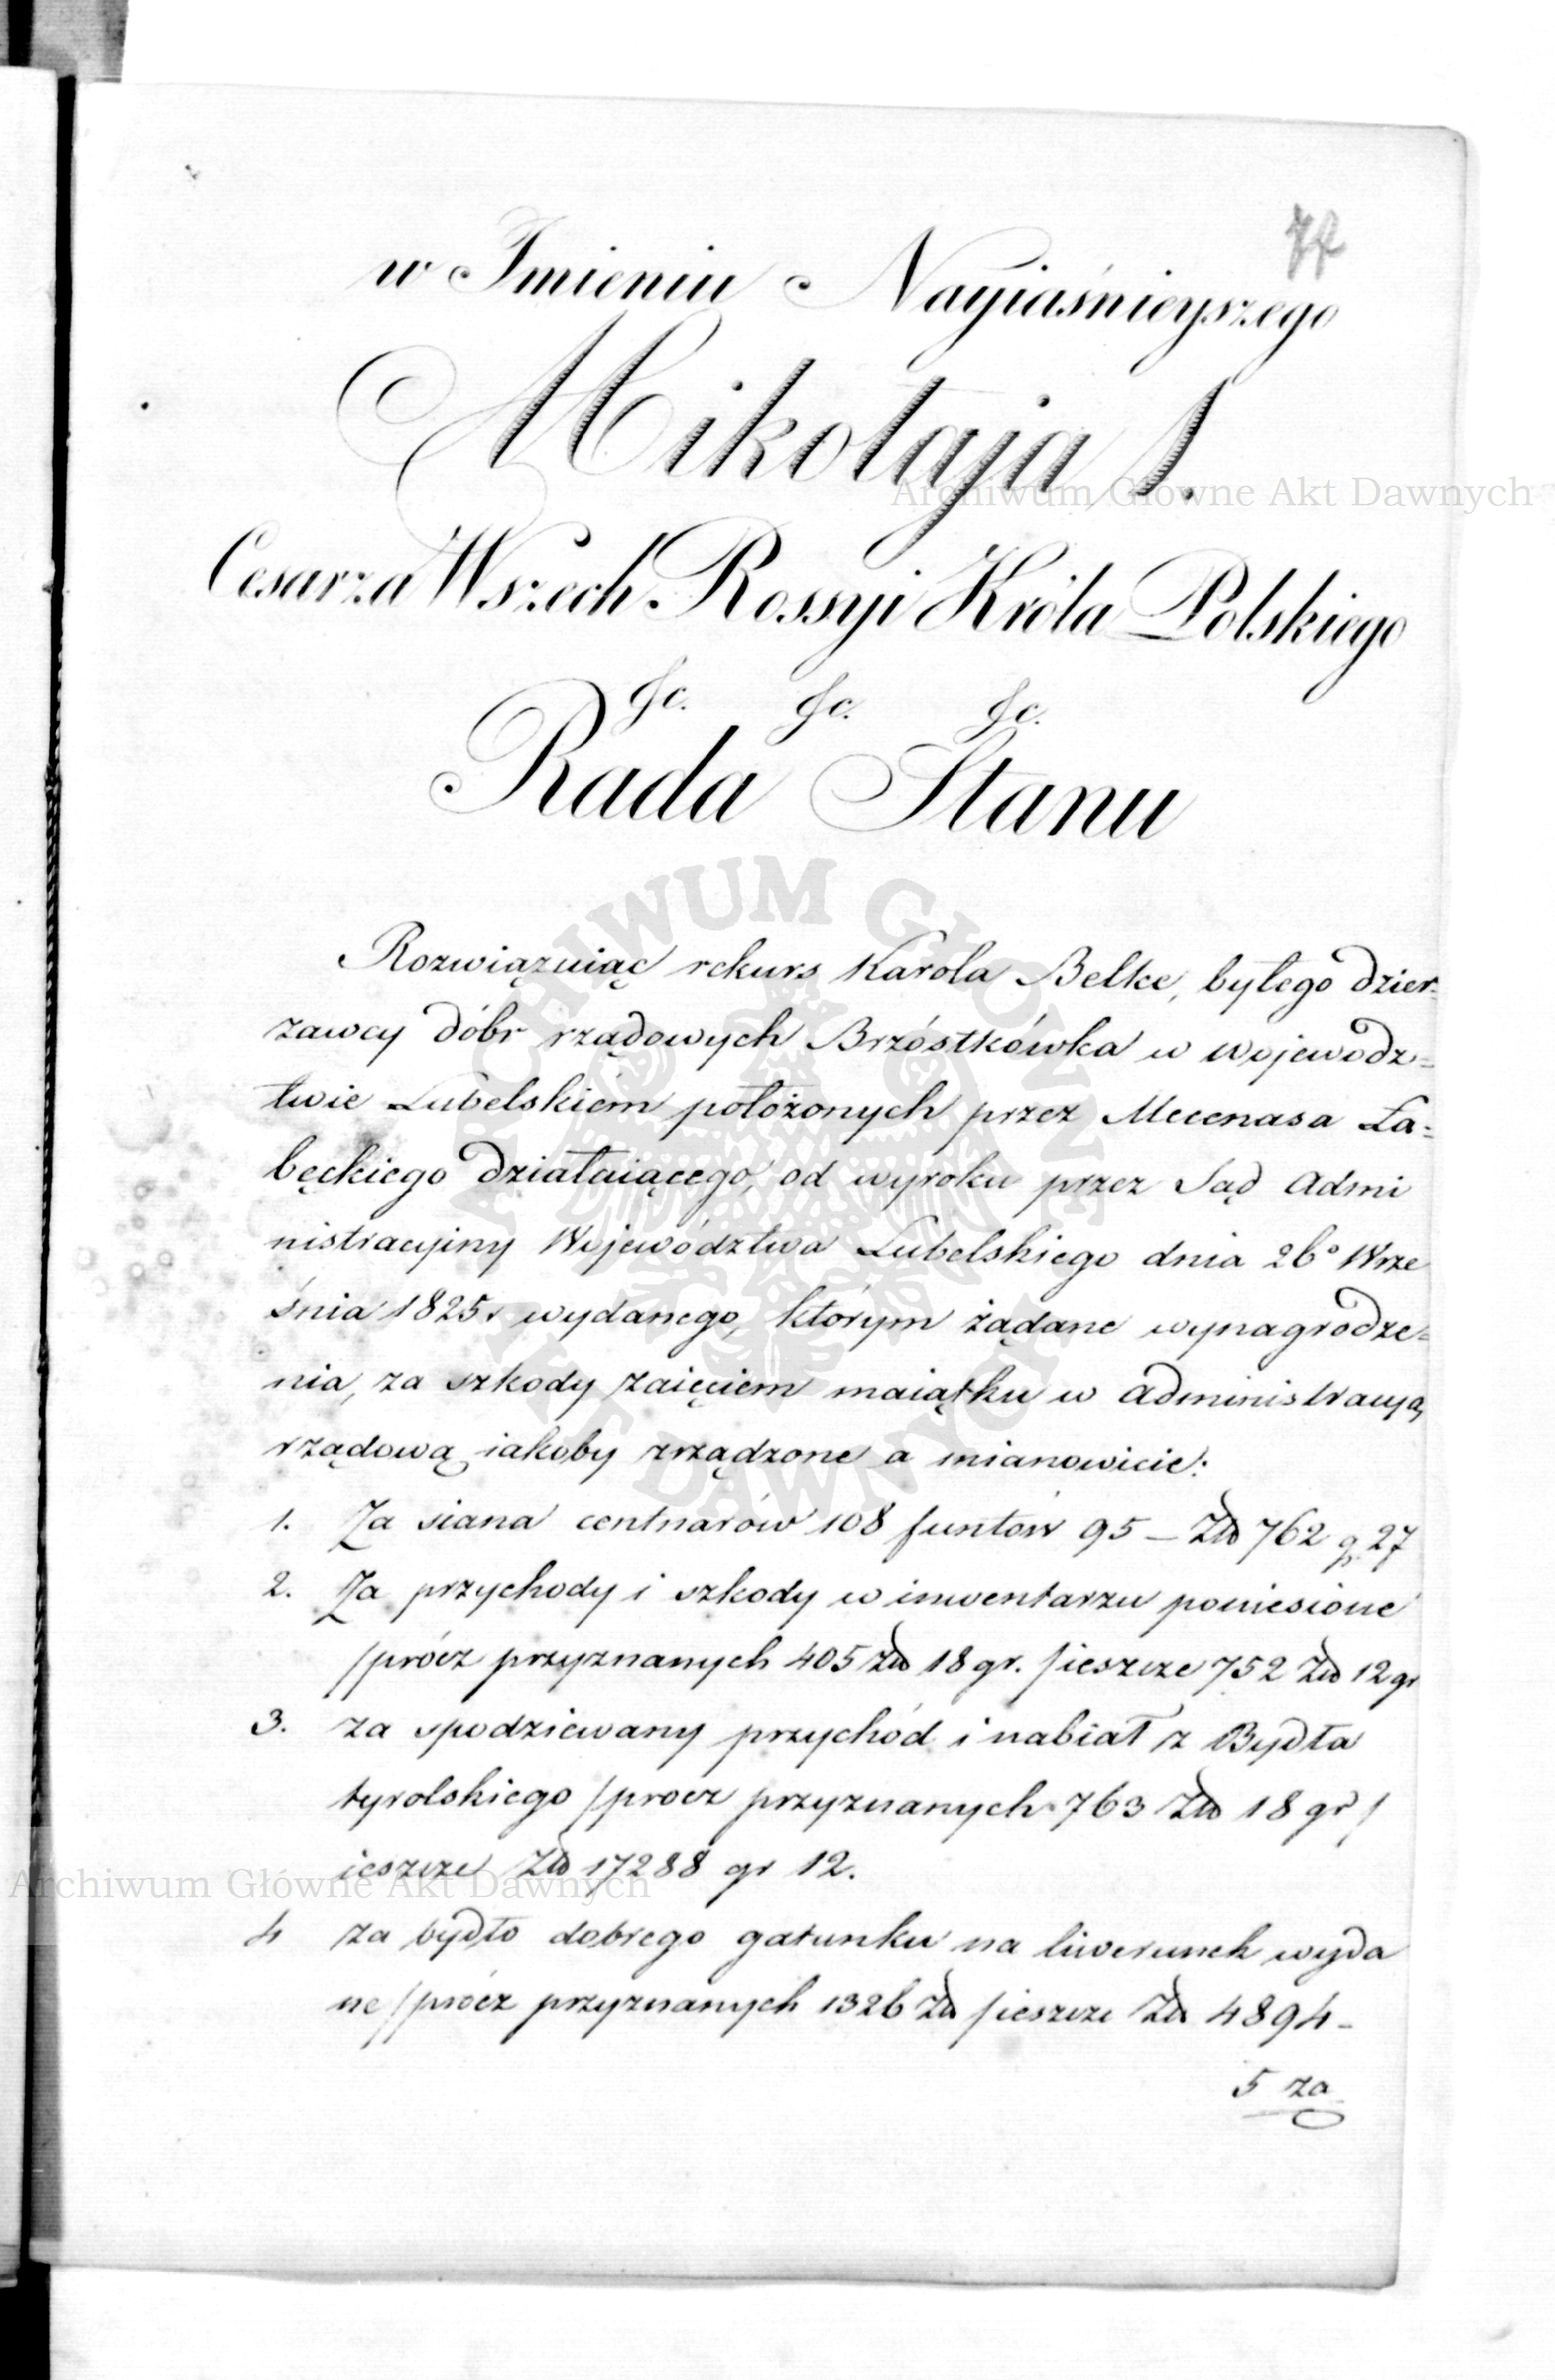 w Imieniu Nayiaśnieyszego
Mikołaja I.
Cesarza Wszech Rossyi Króla Polskiego
&c. &c. &c.
Rada Stanu
Rozwiązuiąc rekurs Karola Belke, byłego dzier-
żawcy dóbr rządowych Brzóstkówka w wojewodz-
twie Lubelskiem położonych przez Mecenasa Ła-
bęckiego działaiącego, od wyroku przez Sąd Admi
nistracyiny Województwa Lubelskiego dnia 26° Wrze
śnia 1825 r wydanego, którym żądane wynagrodze-
nia, za szkody zaięciem maiątku w administracyą
rządową iakoby zrządzone a mianowicie:
1. Za siana centnarów 108 funtów 95 – Zło 762 gr 27
2. Za przychody i szkody w inwentarzu poniesione
/prócz przyznanych 405 Zło 18 gr. /ieszcze 752 Zło 12 gr
3. za spodziewany przychód i nabiał z Bydła
tyrolskiego /procz przyznanych 763 Zło 18 gr /
ieszcze Zło 17288 gr 12.
4 za bydło dobrego gatunku na liwerunek wyda
ne /prócz przyznanych 1326 Zło /ieszcze Zło 4894 –
5 za
Archiwum Główne Akt Dawnych
Archiwum Główne Akt Dawnych
ARCHIWUM GŁÓWNE
AKT DAWNYCH